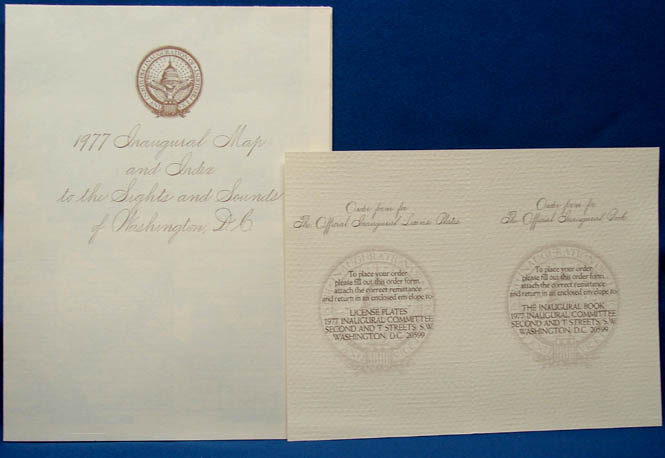 1977 Inaugural Map
and Index
to the Sights and Sounds
of Washington, D.C.
Order form for
The Official Inaugural License Plates
To place your order
please fill out this order form
attach the correct remittance
and return in an enclosed envelope to:
LICENSE PLATES
1977 INAUGURAL COMMITTEE
SECOND AND T STREETS, S.W.
WASHINGTON, D.C. 20599
Order form for
The Official Inaugural Book
To place your order
please fill out this order form
attach the correct remittance
and return in an enclosed envelope to:
THE INAUGURAL BOOK
1977 INAUGURAL COMMITTEE
SECOND AND T STREETS, S.W.
WASHINGTON, D.C. 20599